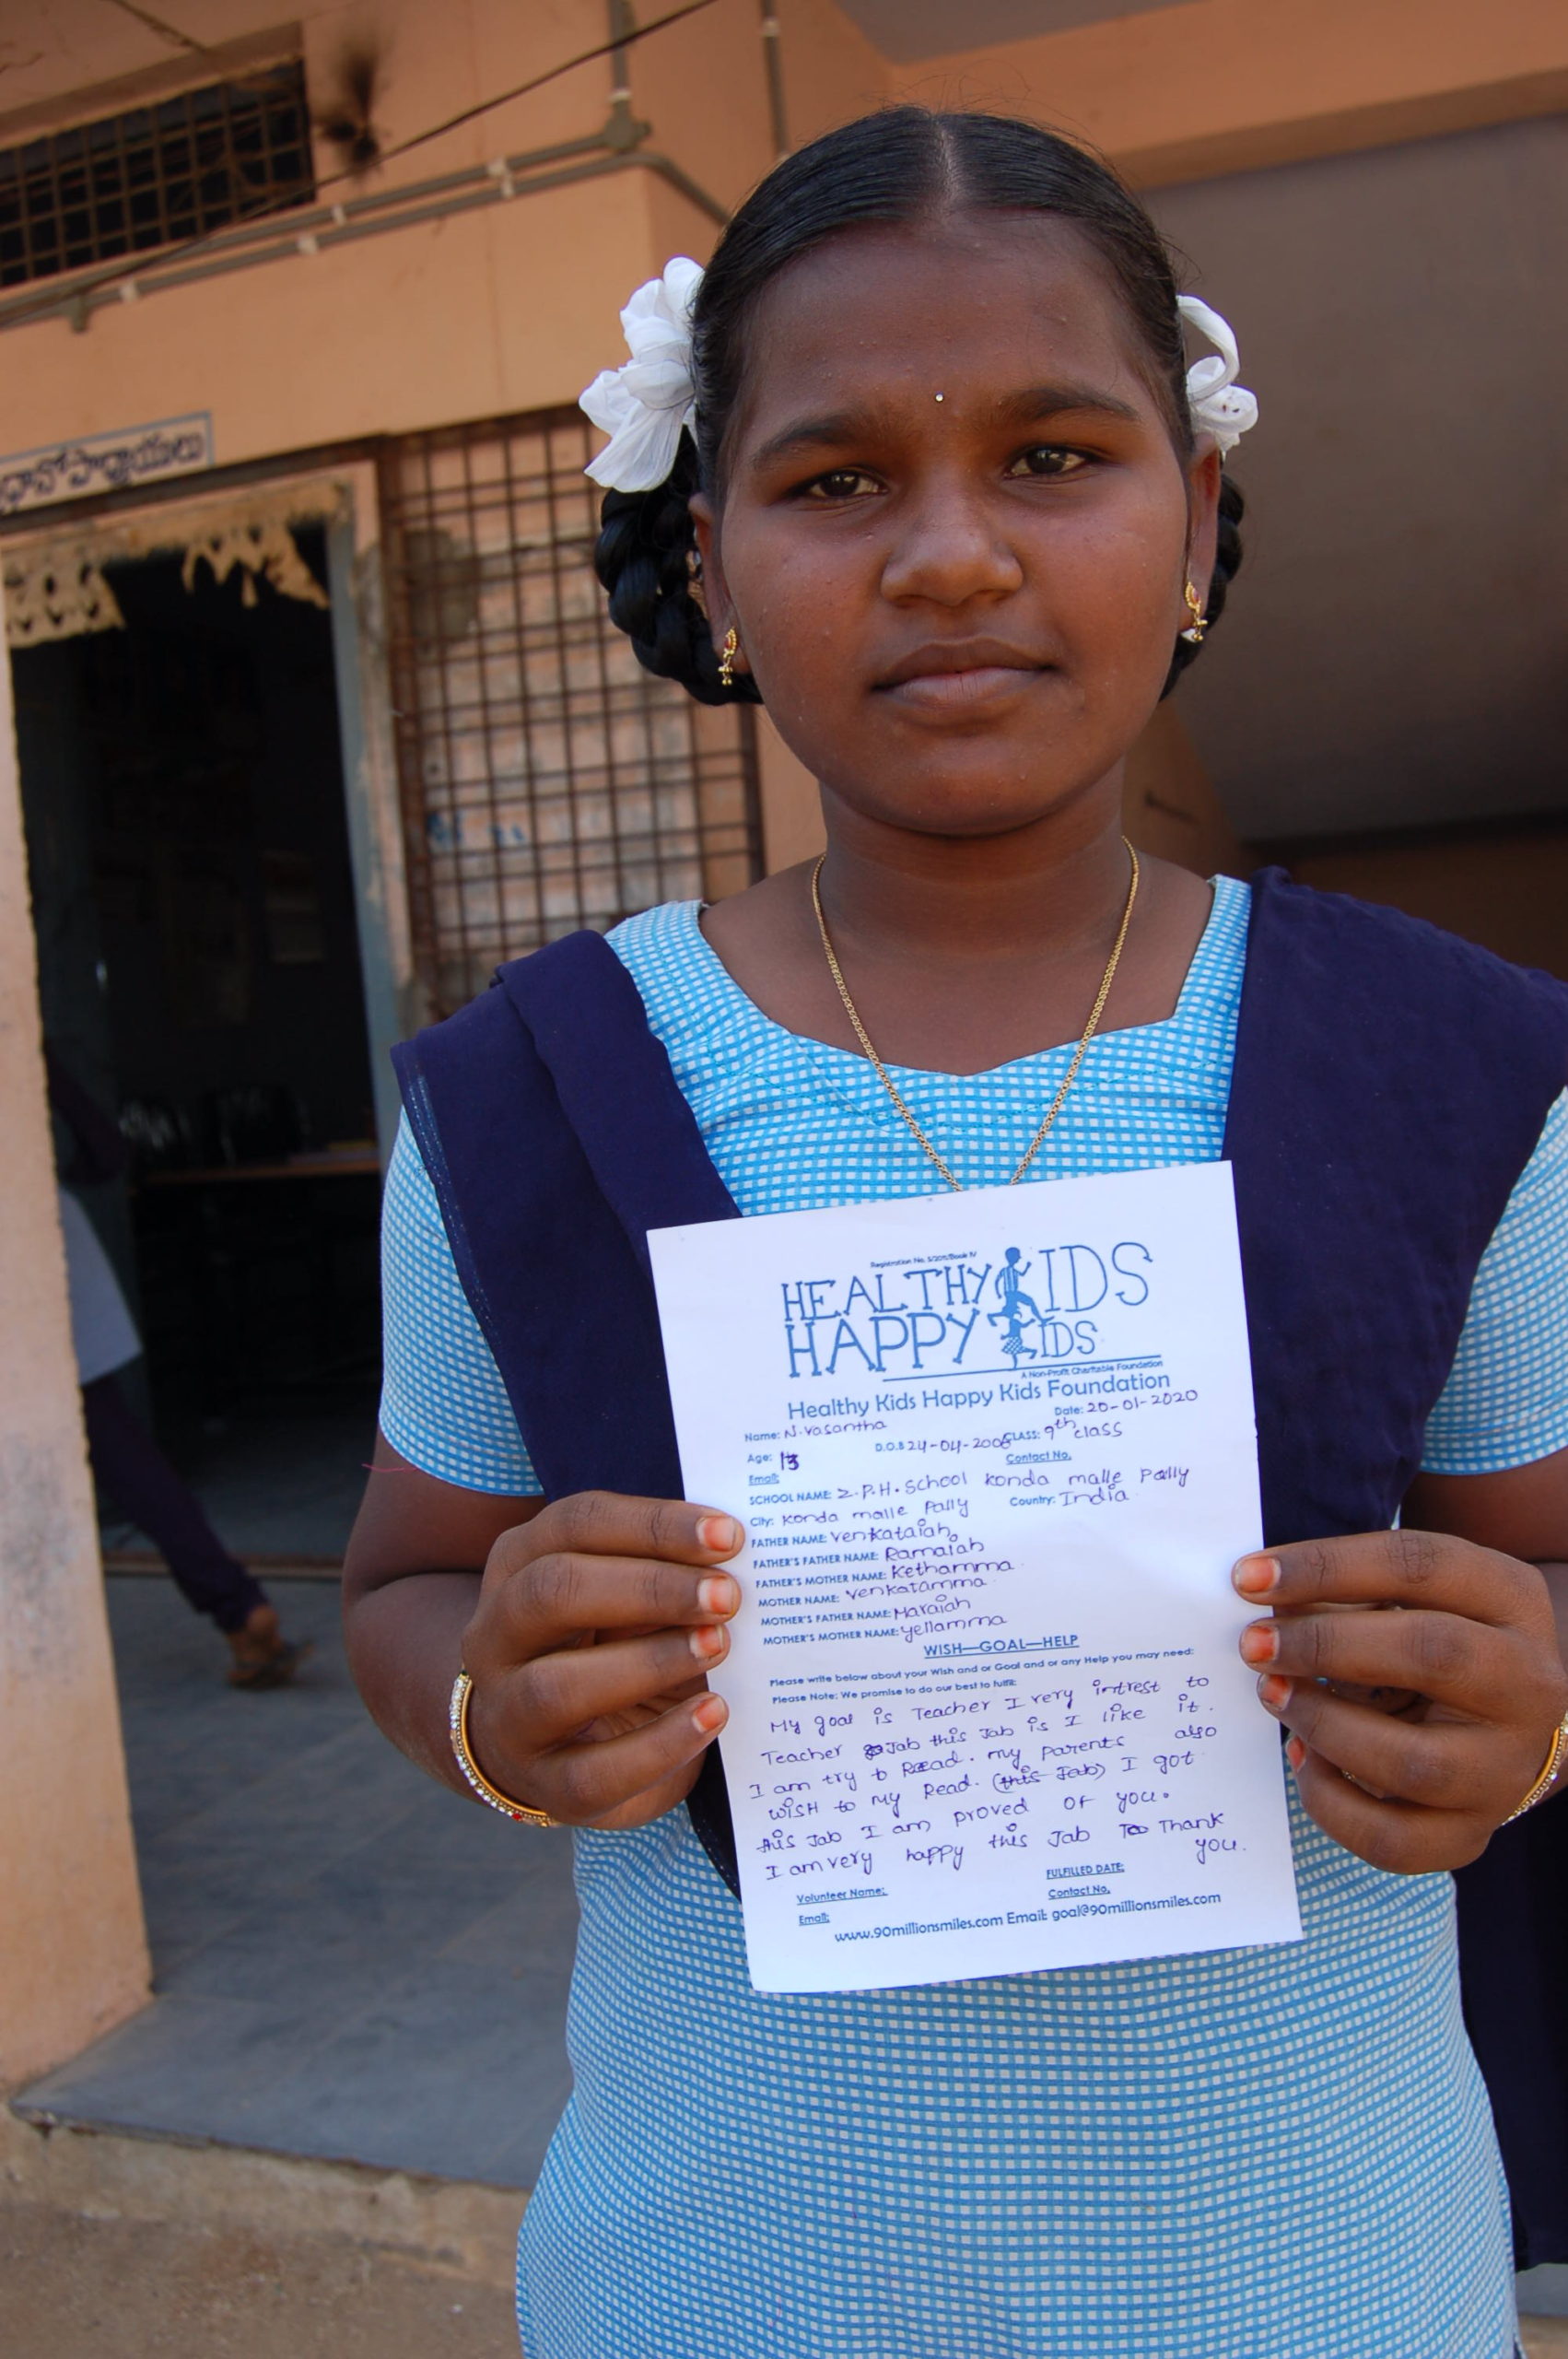 ధానోపాధ్యాయులు
Registration No. 5/2011/Book IV
HEALTHY KIDS
HAPPY KIDS
A Non-Profit Charitable Foundation
Healthy Kids Happy Kids Foundation
Date: 20-01-2020
Name: N.vasantha
Age: 13 D.O.B 24-04-2006 CLASS: 9th class
Email: Contact No.
SCHOOL NAME: Z.P.H. School konda malle Pally
City: konda malle Pally Country: India
FATHER NAME: Venkataiah
FATHER'S FATHER NAME: Ramaiah
FATHER'S MOTHER NAME: Kethamma
MOTHER NAME: Venkatamma
MOTHER'S FATHER NAME: Maraiah
MOTHER'S MOTHER NAME: yellamma
WISH—GOAL—HELP
Please write below about your Wish and or Goal and or any Help you may need:
Please Note: We promise to do our best to fulfill:
My goal is Teacher I very intrest to
Teacher Jab this Jab is I like it.
I am try to Read. my parents also
WISH to my Read. (this Jab) I got
this Jab I am proved of you.
I am very happy this Jab Thank
you.
FULFILLED DATE:
Volunteer Name: Contact No.
Email:
www.90millionsmiles.com Email: goal@90millionsmiles.com